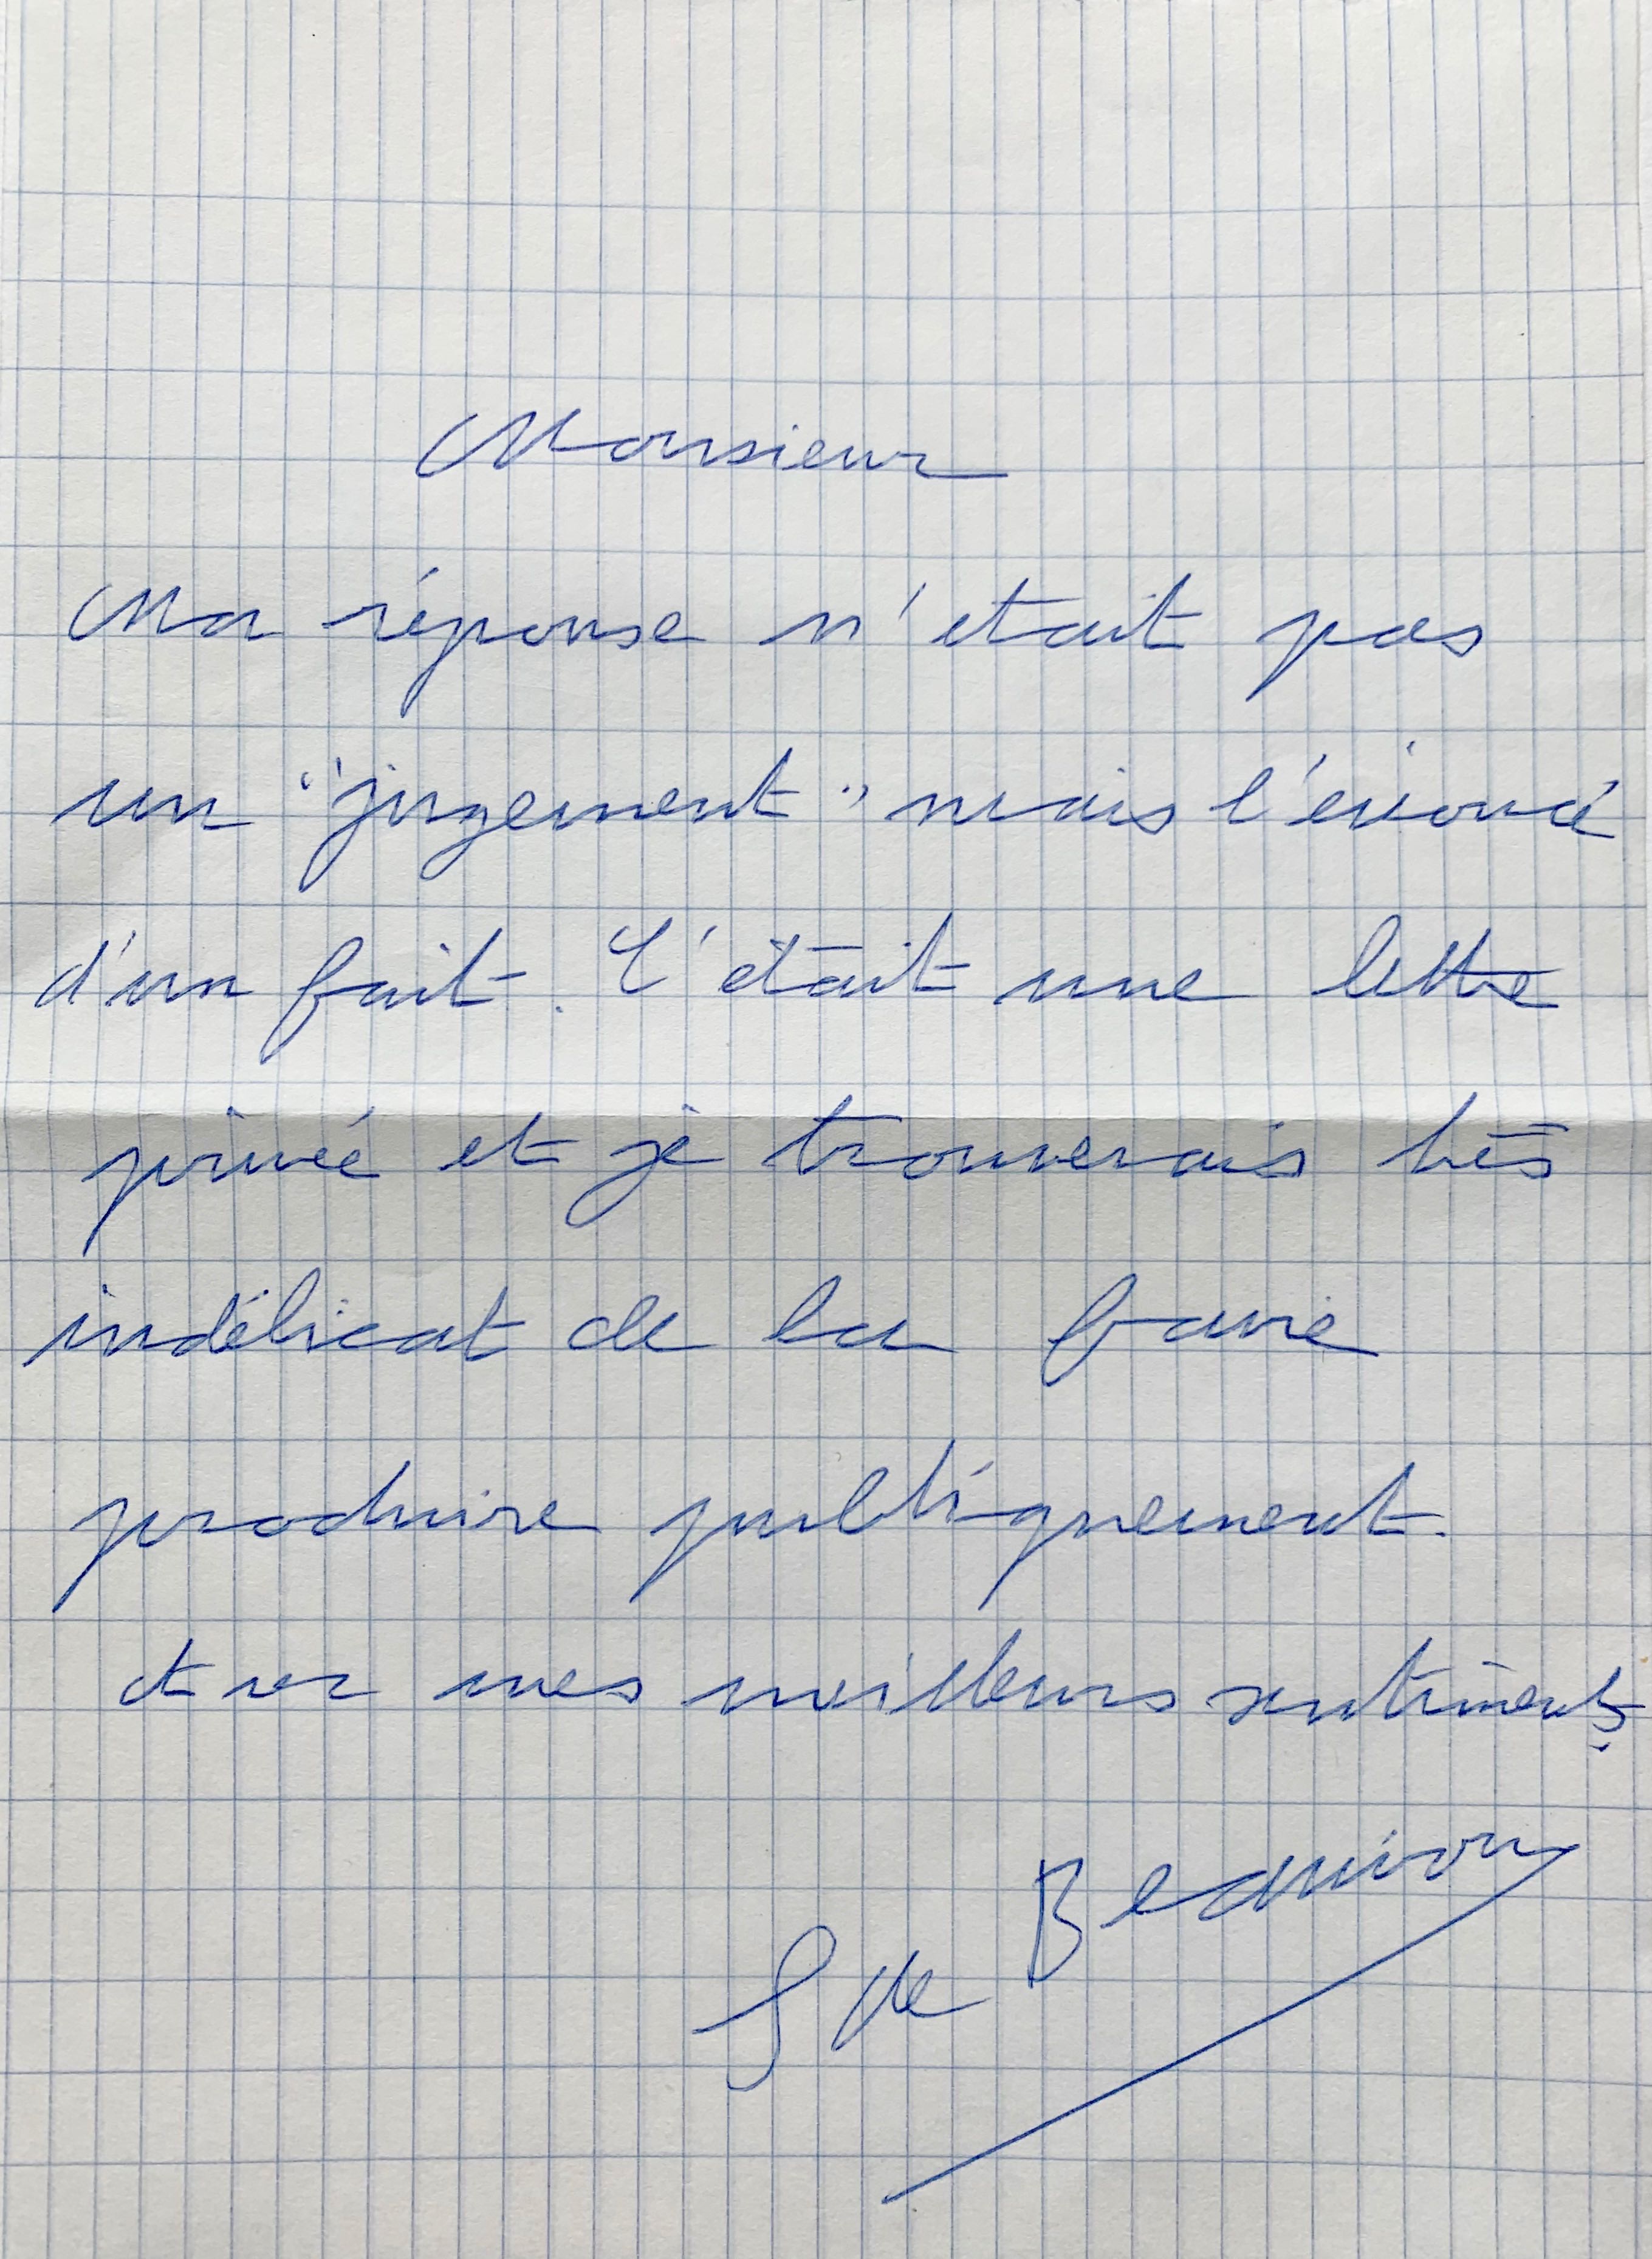 Monsieur
Ma réponse n'etait pas
un "jugement" mais l'énoncé
d'un fait. C'était une lettre
privée et je trouverais très
indélicat de la faire
produire publiquement.
avec mes meilleurs sentiments
S de Beauvoir